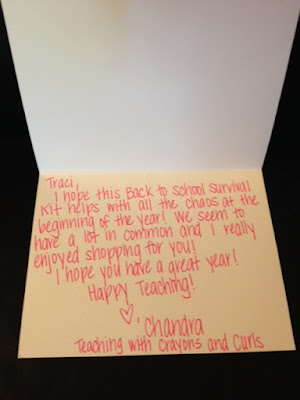 Traci,
I hope this Back to school survival
Kit helps with all the chaos at the
beginning of the year! We seem to
have a lot in common and I really
enjoyed shopping for you!
I hope you have a great year!
Happy Teaching!
♡
'Chandra
Teaching with Crayons and Curls